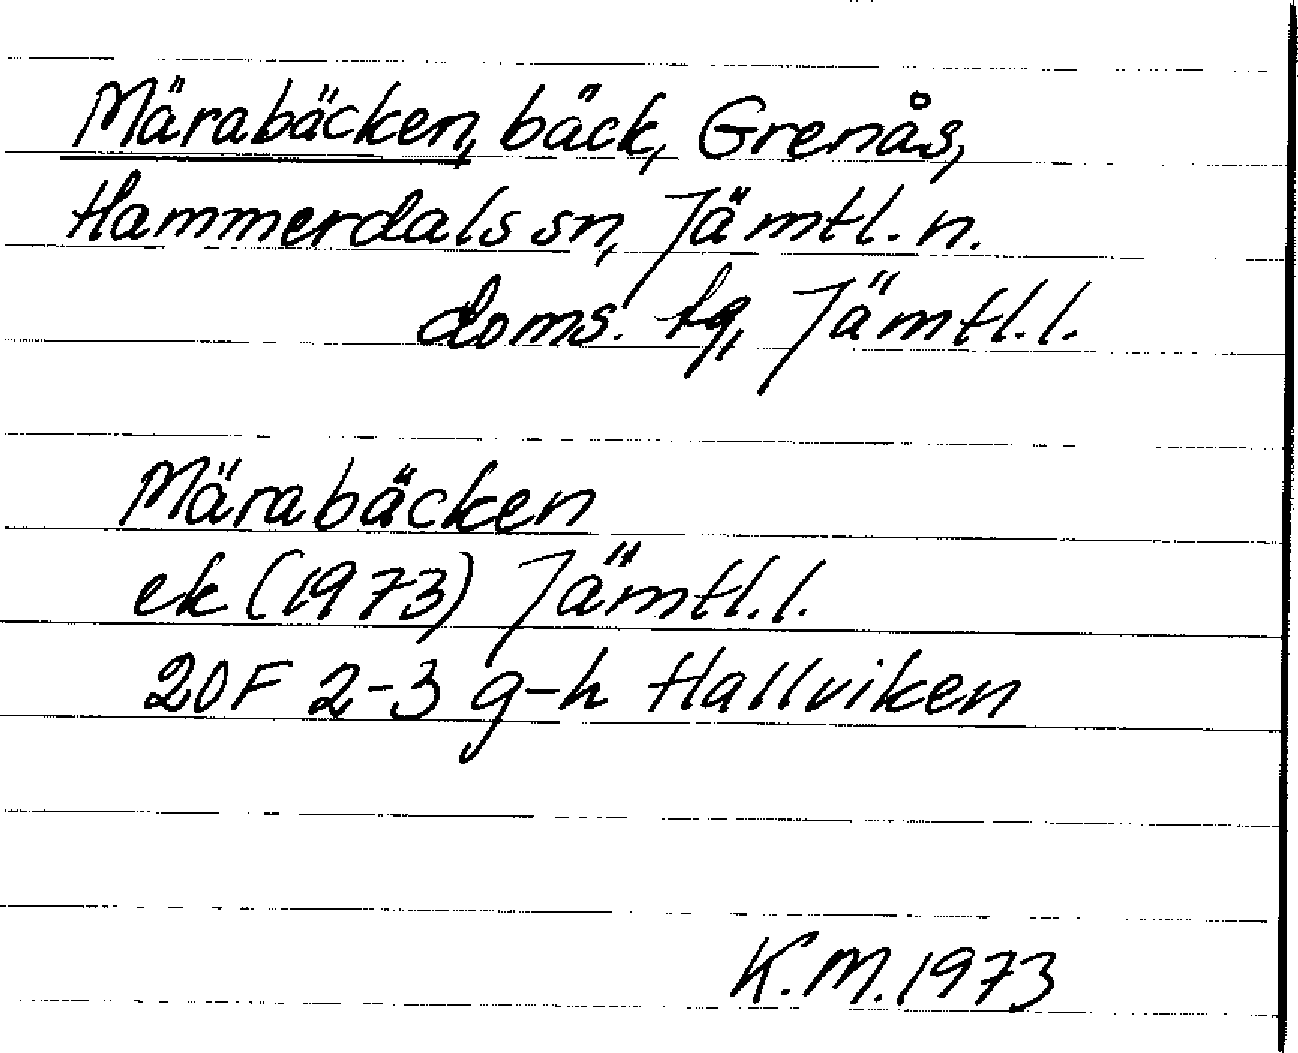 Märabäcken, bäck, Grenås,
Hammerdals sn, Jämtl. n.
doms. tg, Jämtl. l.
Märabäcken
ek (1973) Jämtl. l.
20F 2-3 g-h Hallviken
K.M. 1973